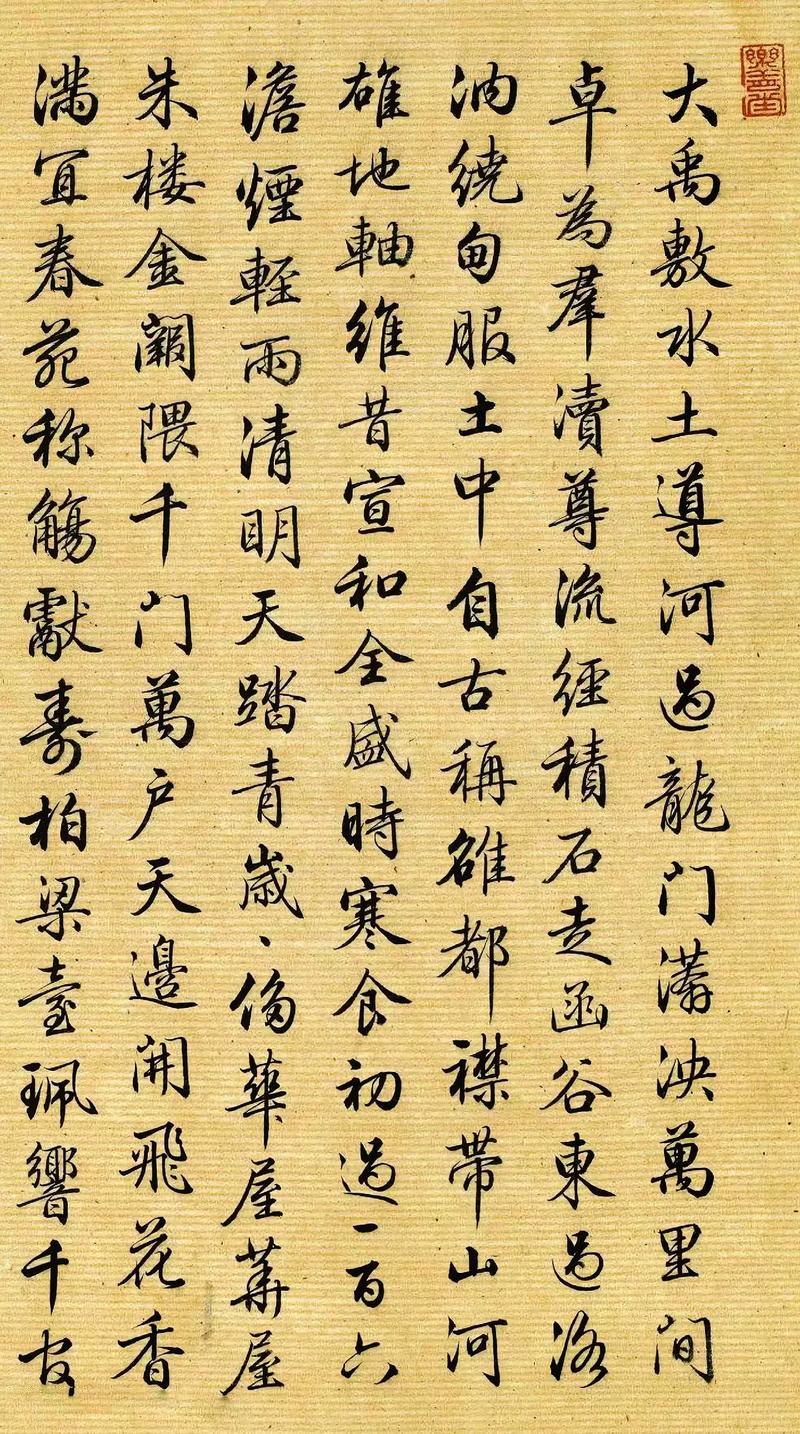 大禹敷水土導河過龍門漭泱萬里間
卓為羣瀆尊流經積石走函谷東過洛
汭繞甸服土中自古稱雄都襟帶山河
雄地軸維昔宣和全盛時寒食初過一百六
澹煙輕雨清明天踏青歲、侈華屋華屋
朱楼金闕隈千門萬户天邊開飛花香
滿宜春苑称觴獻壽柏梁臺珮響千官